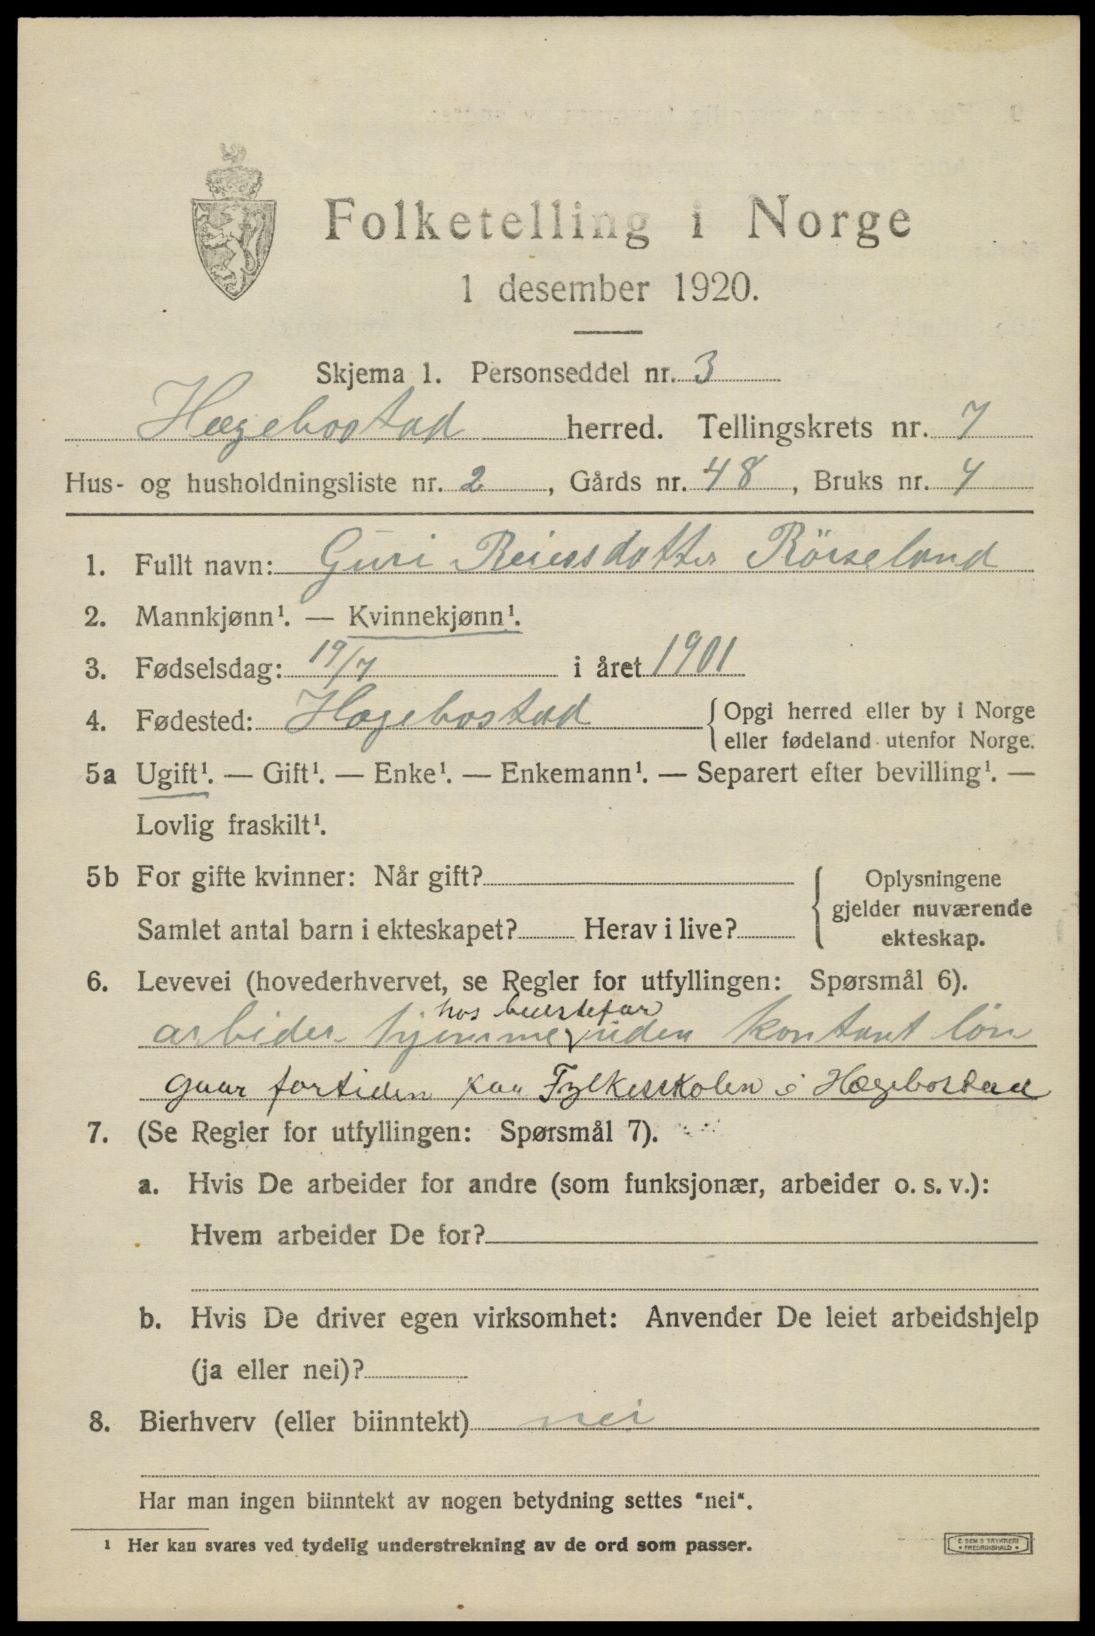 Folketelling i Norge
1 desember 1920.
Skjema 1. Personseddel nr. 3
Hægebostad herred. Tellingskrets nr. 7
Hus- og husholdningsliste nr. 2, Gårds nr. 48, Bruks nr. 4
1. Fullt navn: Guri Reiersdatter Rörseland
2. Mannkjønn¹. — Kvinnekjønn¹.
3. Fødselsdag: 19/7 i året 1901
4. Fødested: Hægebostad {Opgi herred eller by i Norge
eller fødeland utenfor Norge.
5a Ugift¹. — Gift¹. — Enke¹. — Enkemann¹. — Separert efter bevilling¹. —
Lovlig fraskilt¹.
5b For gifte kvinner: Når gift?
Samlet antal barn i ekteskapet? Herav i live?
Oplysningene
gjelder nuværende
ekteskap.
6. Levevei (hovederhvervet, se Regler for utfyllingen: Spørsmål 6).
hos bestefar
arbider hjemme uden kontant lön
gaar fortiden paa Fylkesskolen i Hægebostad
7. (Se Regler for utfyllingen: Spørsmål 7).
a. Hvis De arbeider for andre (som funksjonær, arbeider o. s. v.):
Hvem arbeider De for?
b. Hvis De driver egen virksomhet: Anvender De leiet arbeidshjelp
(ja eller nei)?
8. Bierhverv (eller biinntekt) nei
Har man ingen biinntekt av nogen betydning settes "nei".
¹ Her kan svares ved tydelig understrekning av de ord som passer.
E. SEM'S TRYKKERI
FREDRIKSHALD